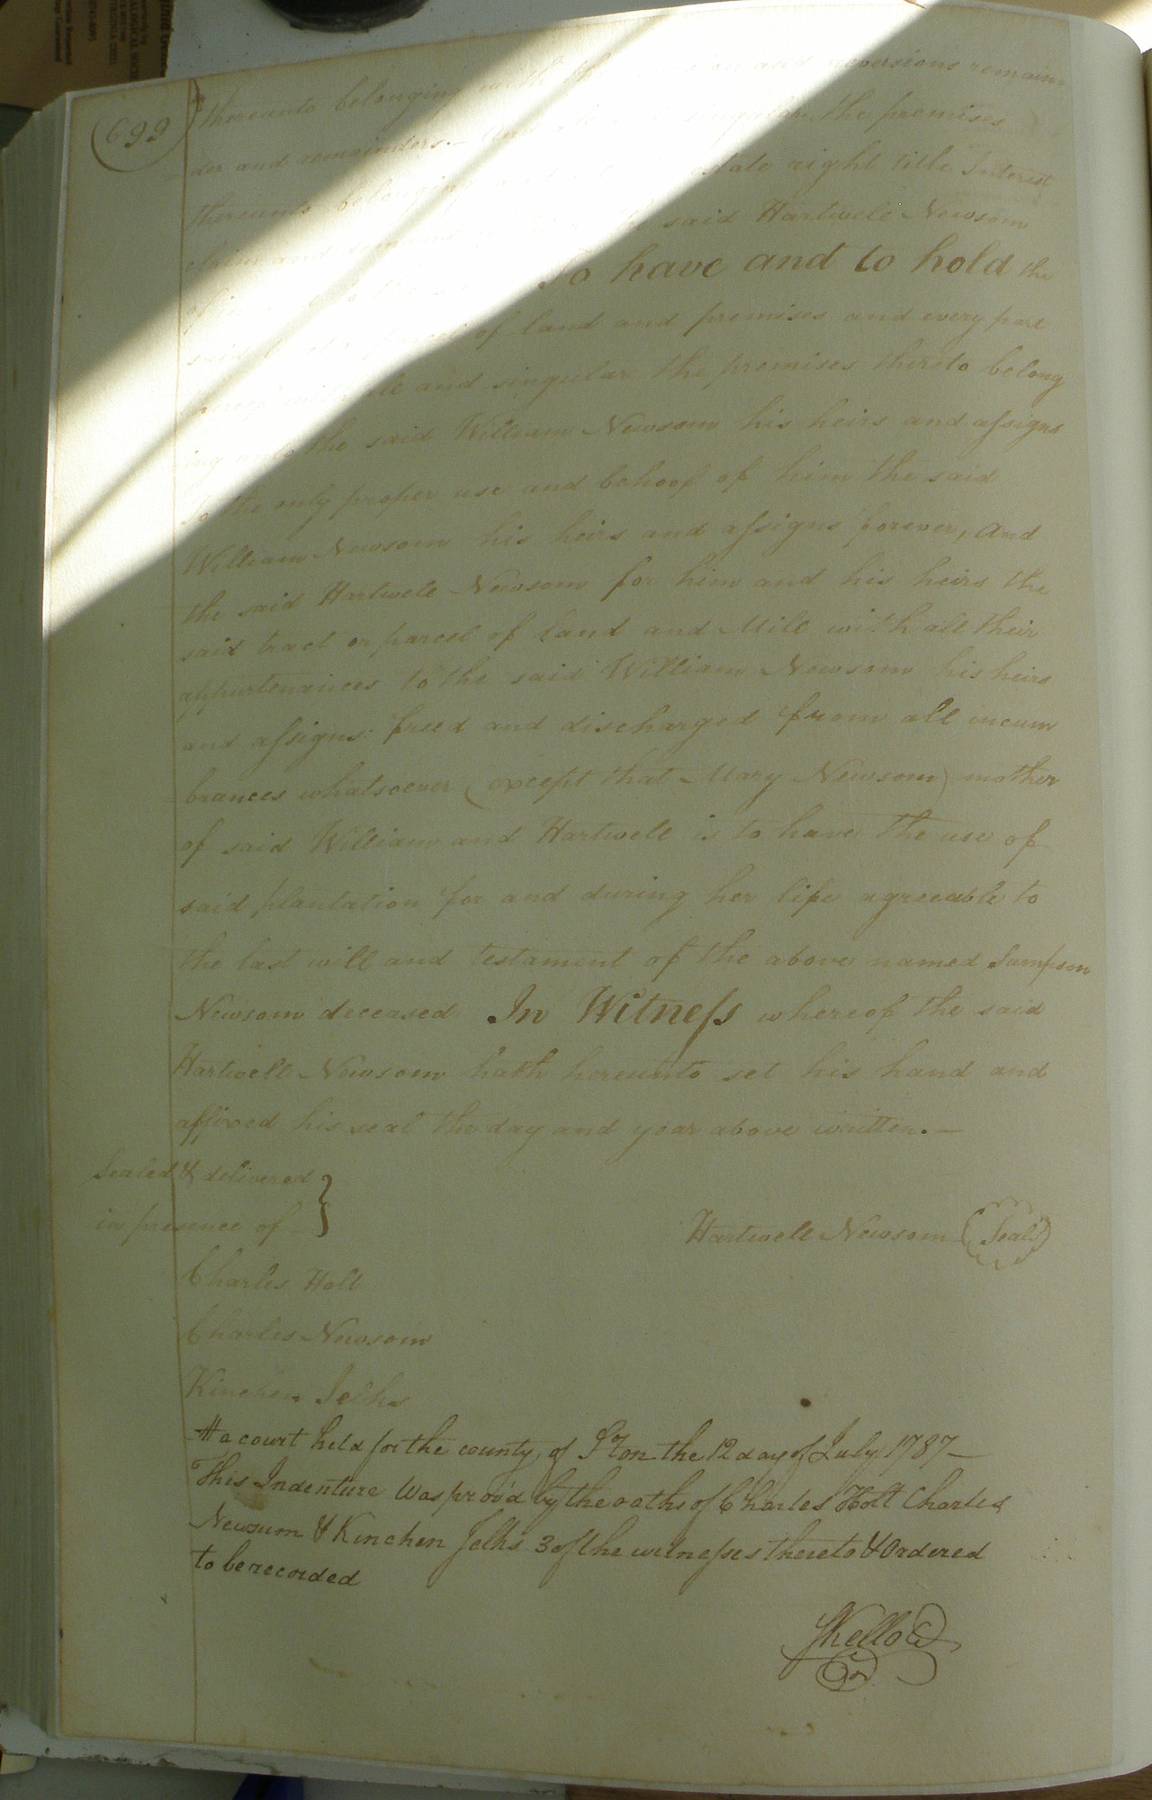 699
thereunto belonging with the and reversions remain
der and remainders. the premises
thereunto belonging estate right title Interest
claim and demand said Hartwell Newsom
of in To have and to hold the
said of land and premises and every part
and singular the premises thereto belong
ing unto the said William Newsom his heirs and assigns
to the only proper use and behoof of him the said
William Newsom his heirs and assigns forever, And
the said Hartwell Newsom for him and his heirs the
said tract or parcel of Land and Mill with all their
appurtenances to the said William Newsom his heirs
and assigns freed and discharged from all incum
brances whatsoever (except that Mary Newsom) mother
of said William and Hartwell is to have the use of
said plantation for and during her life agreeable to
the last will and testament of the above named Sampson
Newsom deceased In Witness whereof the said
Hartwell Newsom hath hereunto set his hand and
affixed his seal the day and year above written.—
Sealed & delivered }
in presence of
Hartwell Newsom (Seal)
Charles Holt
Charles Newsom
Kinchen Jelks
At a court held for the county of Sºton the 12 day of July 1787—
This Indenture Was prov'd by the oaths of Charles Holt Charles
Newsum & Kinchen Jelks 3 of the witnesses thereto & Ordered
to be recorded